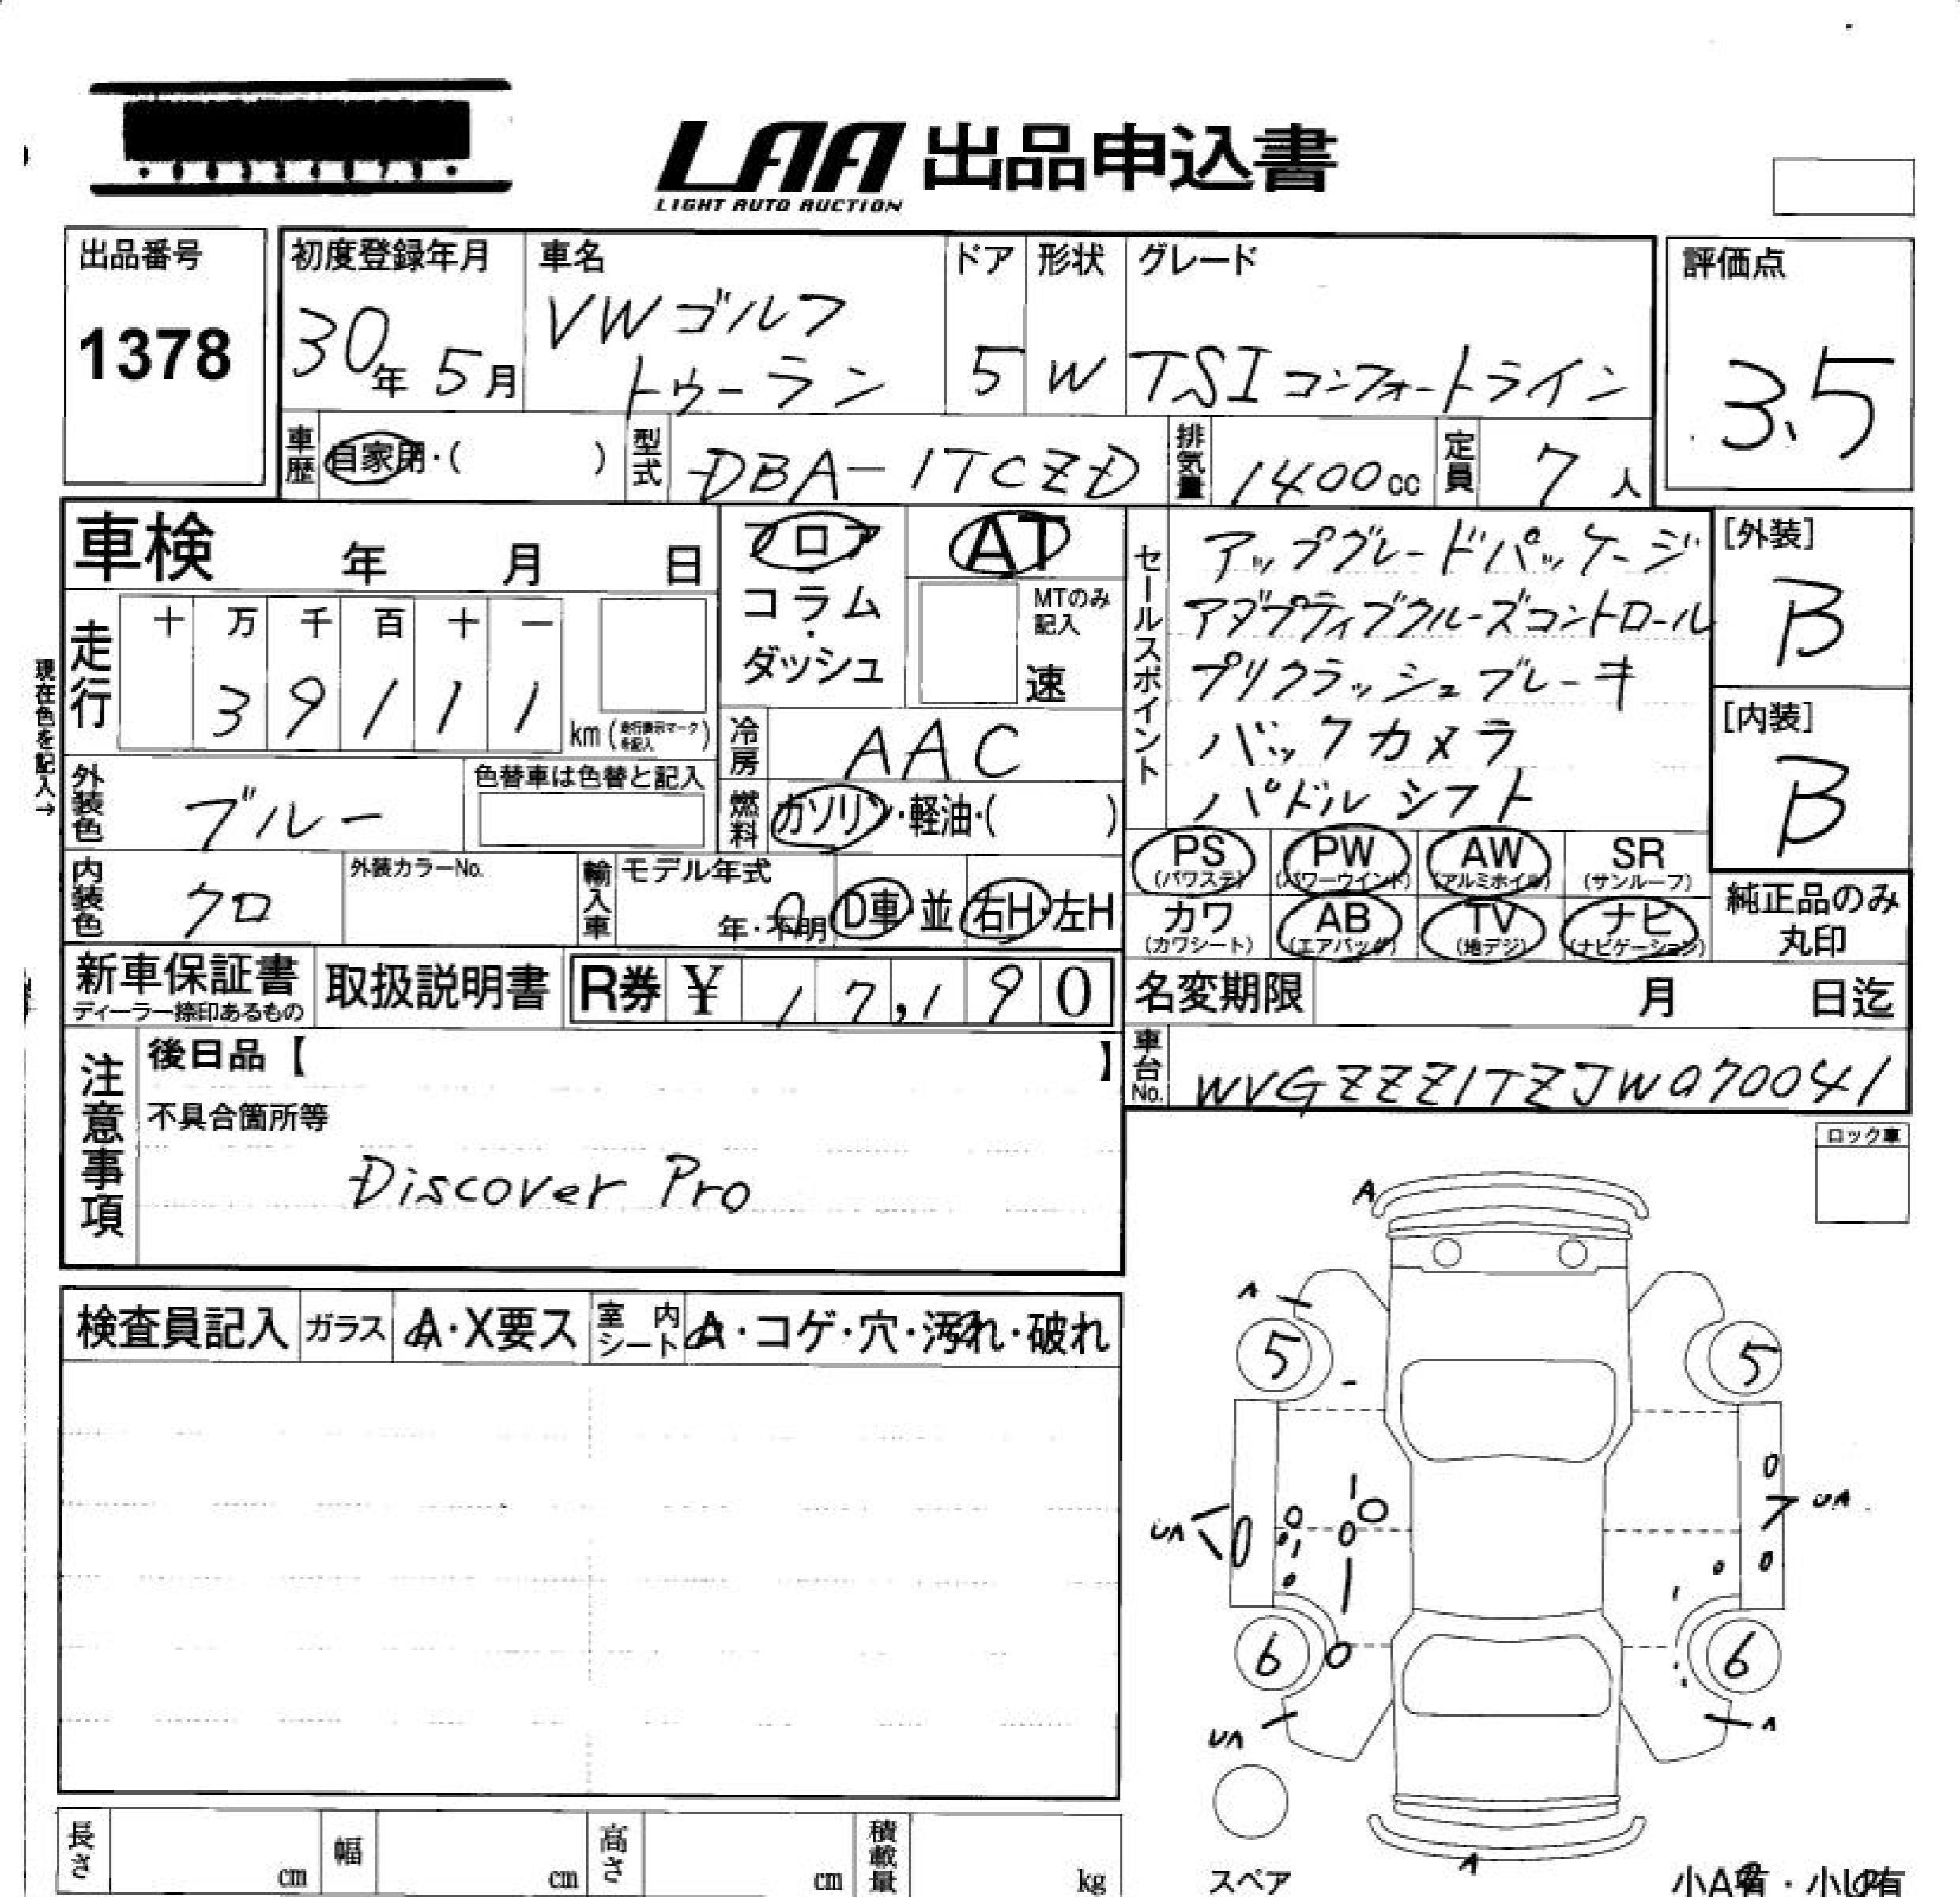 LAA 出品申込書
LIGHT AUTO AUCTION
出品番号
1378
初度登録年月
30年 5月
車名
VW ゴルフ
トゥーラン
ドア
5
形状
W
グレード
TSI コンフォートライン
評価点
3.5
車歴 自家用・( )
型式 DBA-1TCZD
排気量 1400cc
定員 7人
車検 年 月 日
フロア
コラム
・
ダッシュ
AT
MTのみ
記入
速
セールスポイント
アップグレードパッケージ
アダプティブクルーズコントロール
プリクラッシュブレーキ
バックカメラ
パドルシフト
[外装]
B
[内装]
B
現在色を記入→
走行
十 万 千 百 十 一
3 9 1 1 1
km (走行表示マークを記入)
冷房 AAC
外装色 ブルー
色替車は色替と記入
燃料 ガソリン・軽油・( )
内装色 クロ
外装カラーNo.
輸入車
モデル年式
年・不明
D車・並
右H・左H
PS (パワステ)
PW (パワーウインド)
AW (アルミホイル)
SR (サンルーフ)
カワ (カワシート)
AB (エアバッグ)
TV (地デジ)
ナビ (ナビゲーション)
純正品のみ
丸印
新車保証書
ディーラー捺印あるもの
取扱説明書
R券 ¥ 17,190
名変期限 月 日迄
車台No. WVGZZZ1TZJW070041
注意事項
後日品【 】
不具合箇所等
Discover Pro
ロック車
検査員記入
ガラス A・X要ス
室内シート A・コゲ・穴・汚れ・破れ
A
A
5 5
UA
UA
6 6
UA
A
A
スペア
小A有・小U有
長さ cm
幅 cm
高さ cm
積載量 kg